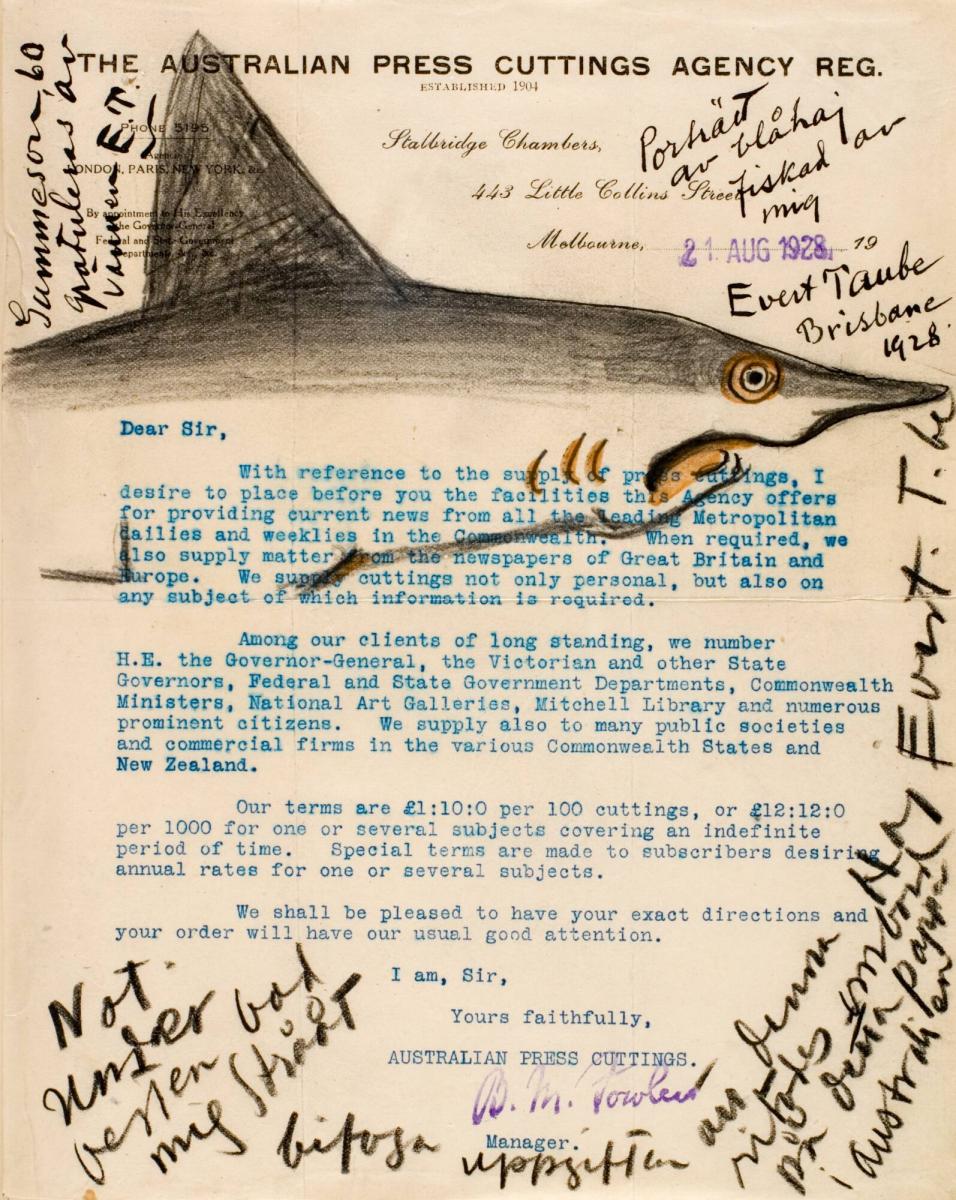 THE AUSTRALIAN PRESS CUTTINGS AGENCY REG.
ESTABLISHED 1904
PHONE 5195
Agencies
LONDON, PARIS, NEW YORK, &c.
By appointment to His Excellency
the Governor-General
Federal and State Government
Departments, &c., &c.
Stalbridge Chambers,
443 Little Collins Street
Melbourne, 21 AUG 1928 19
Gummesson 60
gratuleras av
vännen E.T.
Porträtt
av blåhaj
fiskad av
mig
Evert Taube
Brisbane
1928
Dear Sir,
With reference to the supply of press cuttings, I
desire to place before you the facilities this Agency offers
for providing current news from all the leading Metropolitan
dailies and weeklies in the Commonwealth. When required, we
also supply matter from the newspapers of Great Britain and
Europe. We supply cuttings not only personal, but also on
any subject of which information is required.
Among our clients of long standing, we number
H.E. the Governor-General, the Victorian and other State
Governors, Federal and State Government Departments, Commonwealth
Ministers, National Art Galleries, Mitchell Library and numerous
prominent citizens. We supply also to many public societies
and commercial firms in the various Commonwealth States and
New Zealand.
Our terms are £1:10:0 per 100 cuttings, or £12:12:0
per 1000 for one or several subjects covering an indefinite
period of time. Special terms are made to subscribers desiring
annual rates for one or several subjects.
We shall be pleased to have your exact directions and
your order will have our usual good attention.
I am, Sir,
Yours faithfully,
AUSTRALIAN PRESS CUTTINGS.
B. M. Fowler
Manager.
Not.
Under
bad
mig
bifoga
uppgiften
att denna
ritades ombord
på detta papper
i Australien
Evert. T.be